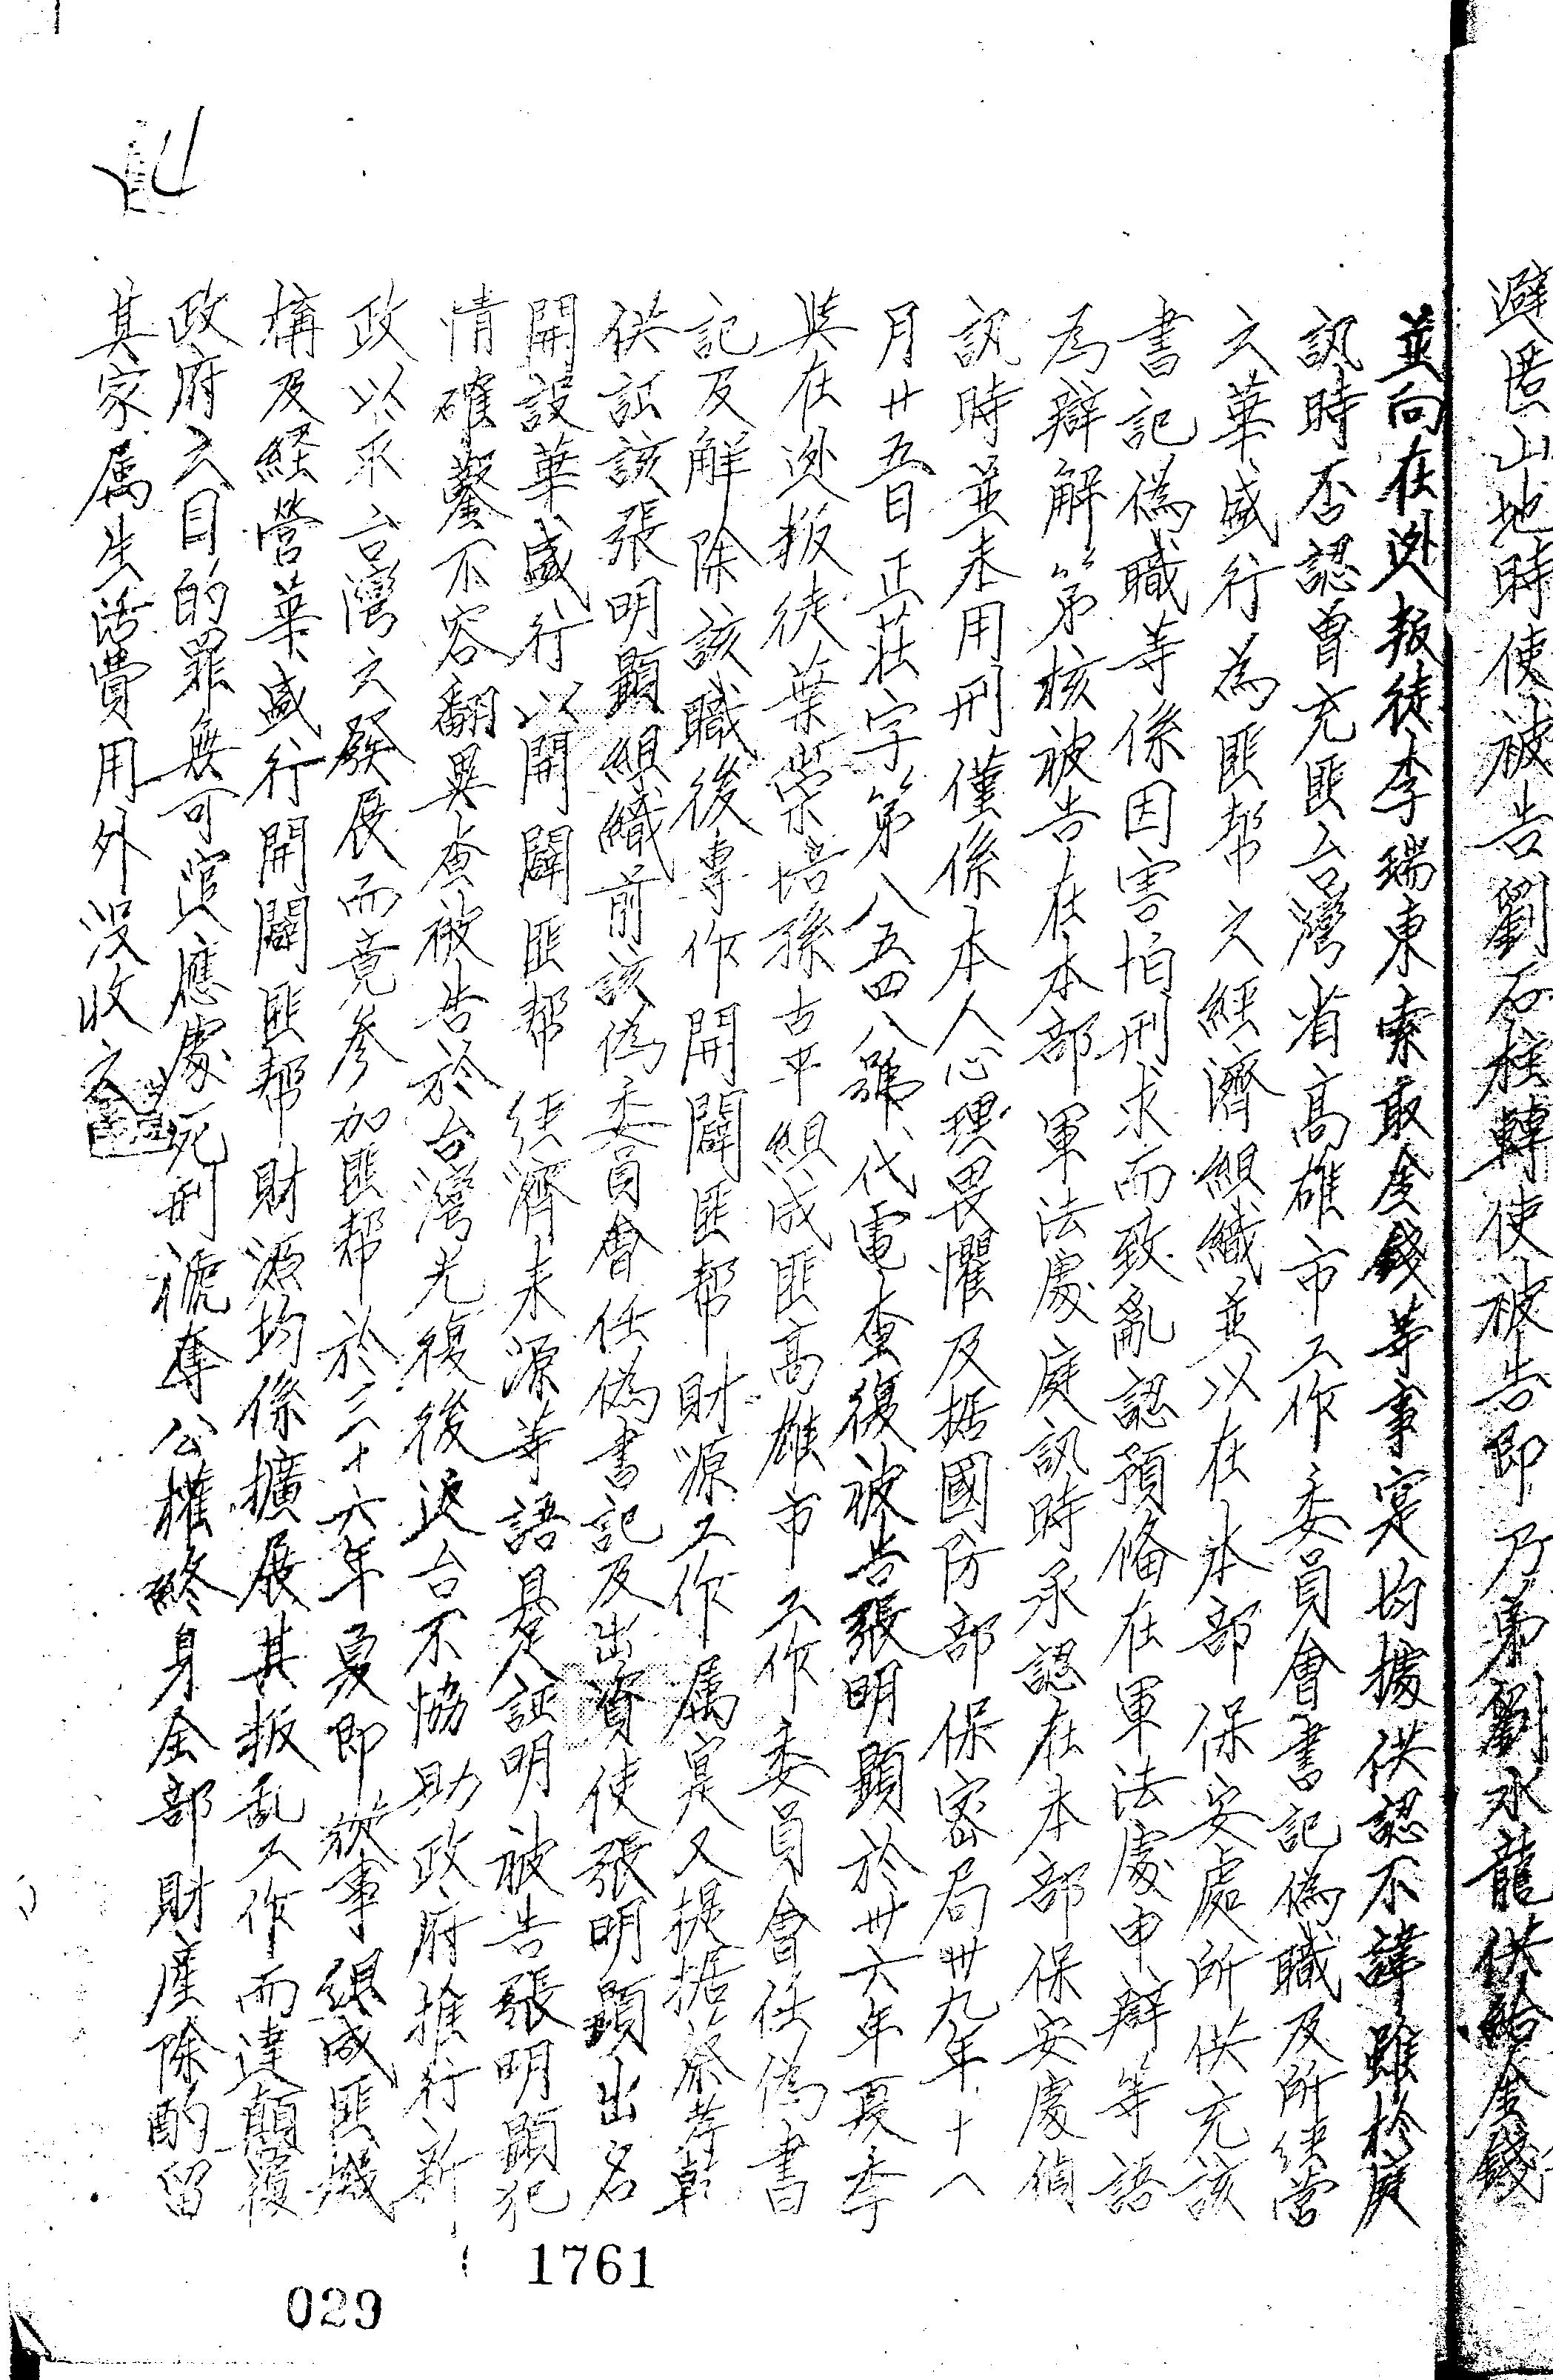 避匿山地時使被告劉石柱轉使被告即乃弟劉水龍供給金錢
並向在逃叛徒李瑞東索取金錢等事寔均據供認不諱雖於庭
訊時否認曾充匪台灣省高雄市工作委員會書記偽職及所經營
之華盛行為匪幫之經濟組織並以在本部保安處所供充該
書記偽職等係因害怕刑求而致亂認預備在軍法處申辯等語
為辯解第核被告在本部軍法處庭訊時承認在本部保安處偵
訊時並未用刑僅係本人心理畏懼及据國防部保密局卅九年十八
月廿五日正莊字第八五四八號代電查復被告張明顯於卅六年夏季
與在逃叛徒葉崇培孫古平組成匪高雄市工作委員會任偽書
記及解除該職後專作開闢匪帮財源工作属寔又提据蔡孝乾
供証該張明顯組織前該偽委員會任偽書記及出資使張明顯出名
開設華盛行以開闢匪帮經濟来源等語是証明被告張明顯犯
情確鑿不容翻異查被告於台灣光復後返台不恊助政府推行新
政以求台灣之發展而竟参加匪帮於三十六年夏即從事組成匪機
構及経營華盛行開闢匪帮財源均係擴展其叛乱工作而達顛覆
政府之目的罪無可逭應處死刑褫奪公權終身全部財產除酌留
其家属生活費用外沒收之
1761
029